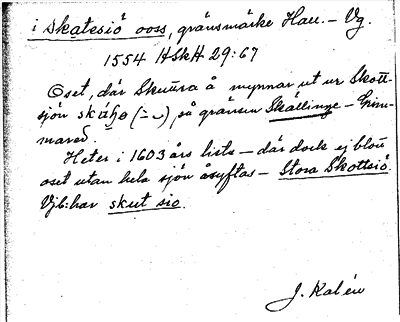 i skatesiö ooss, gränsmärke Hall. – Vg.
1554 HSkH 29:67
Oset, där Skuüra å mynnar ut ur Skott-
sjön på gränsen Skällinge – Grim-
mared.
Heter i 1603 års lista – där dock ej blott
oset utan hela sjön åsyftas – Stora Skottsiö.
Vjb: har skut sio.
J. Kalén